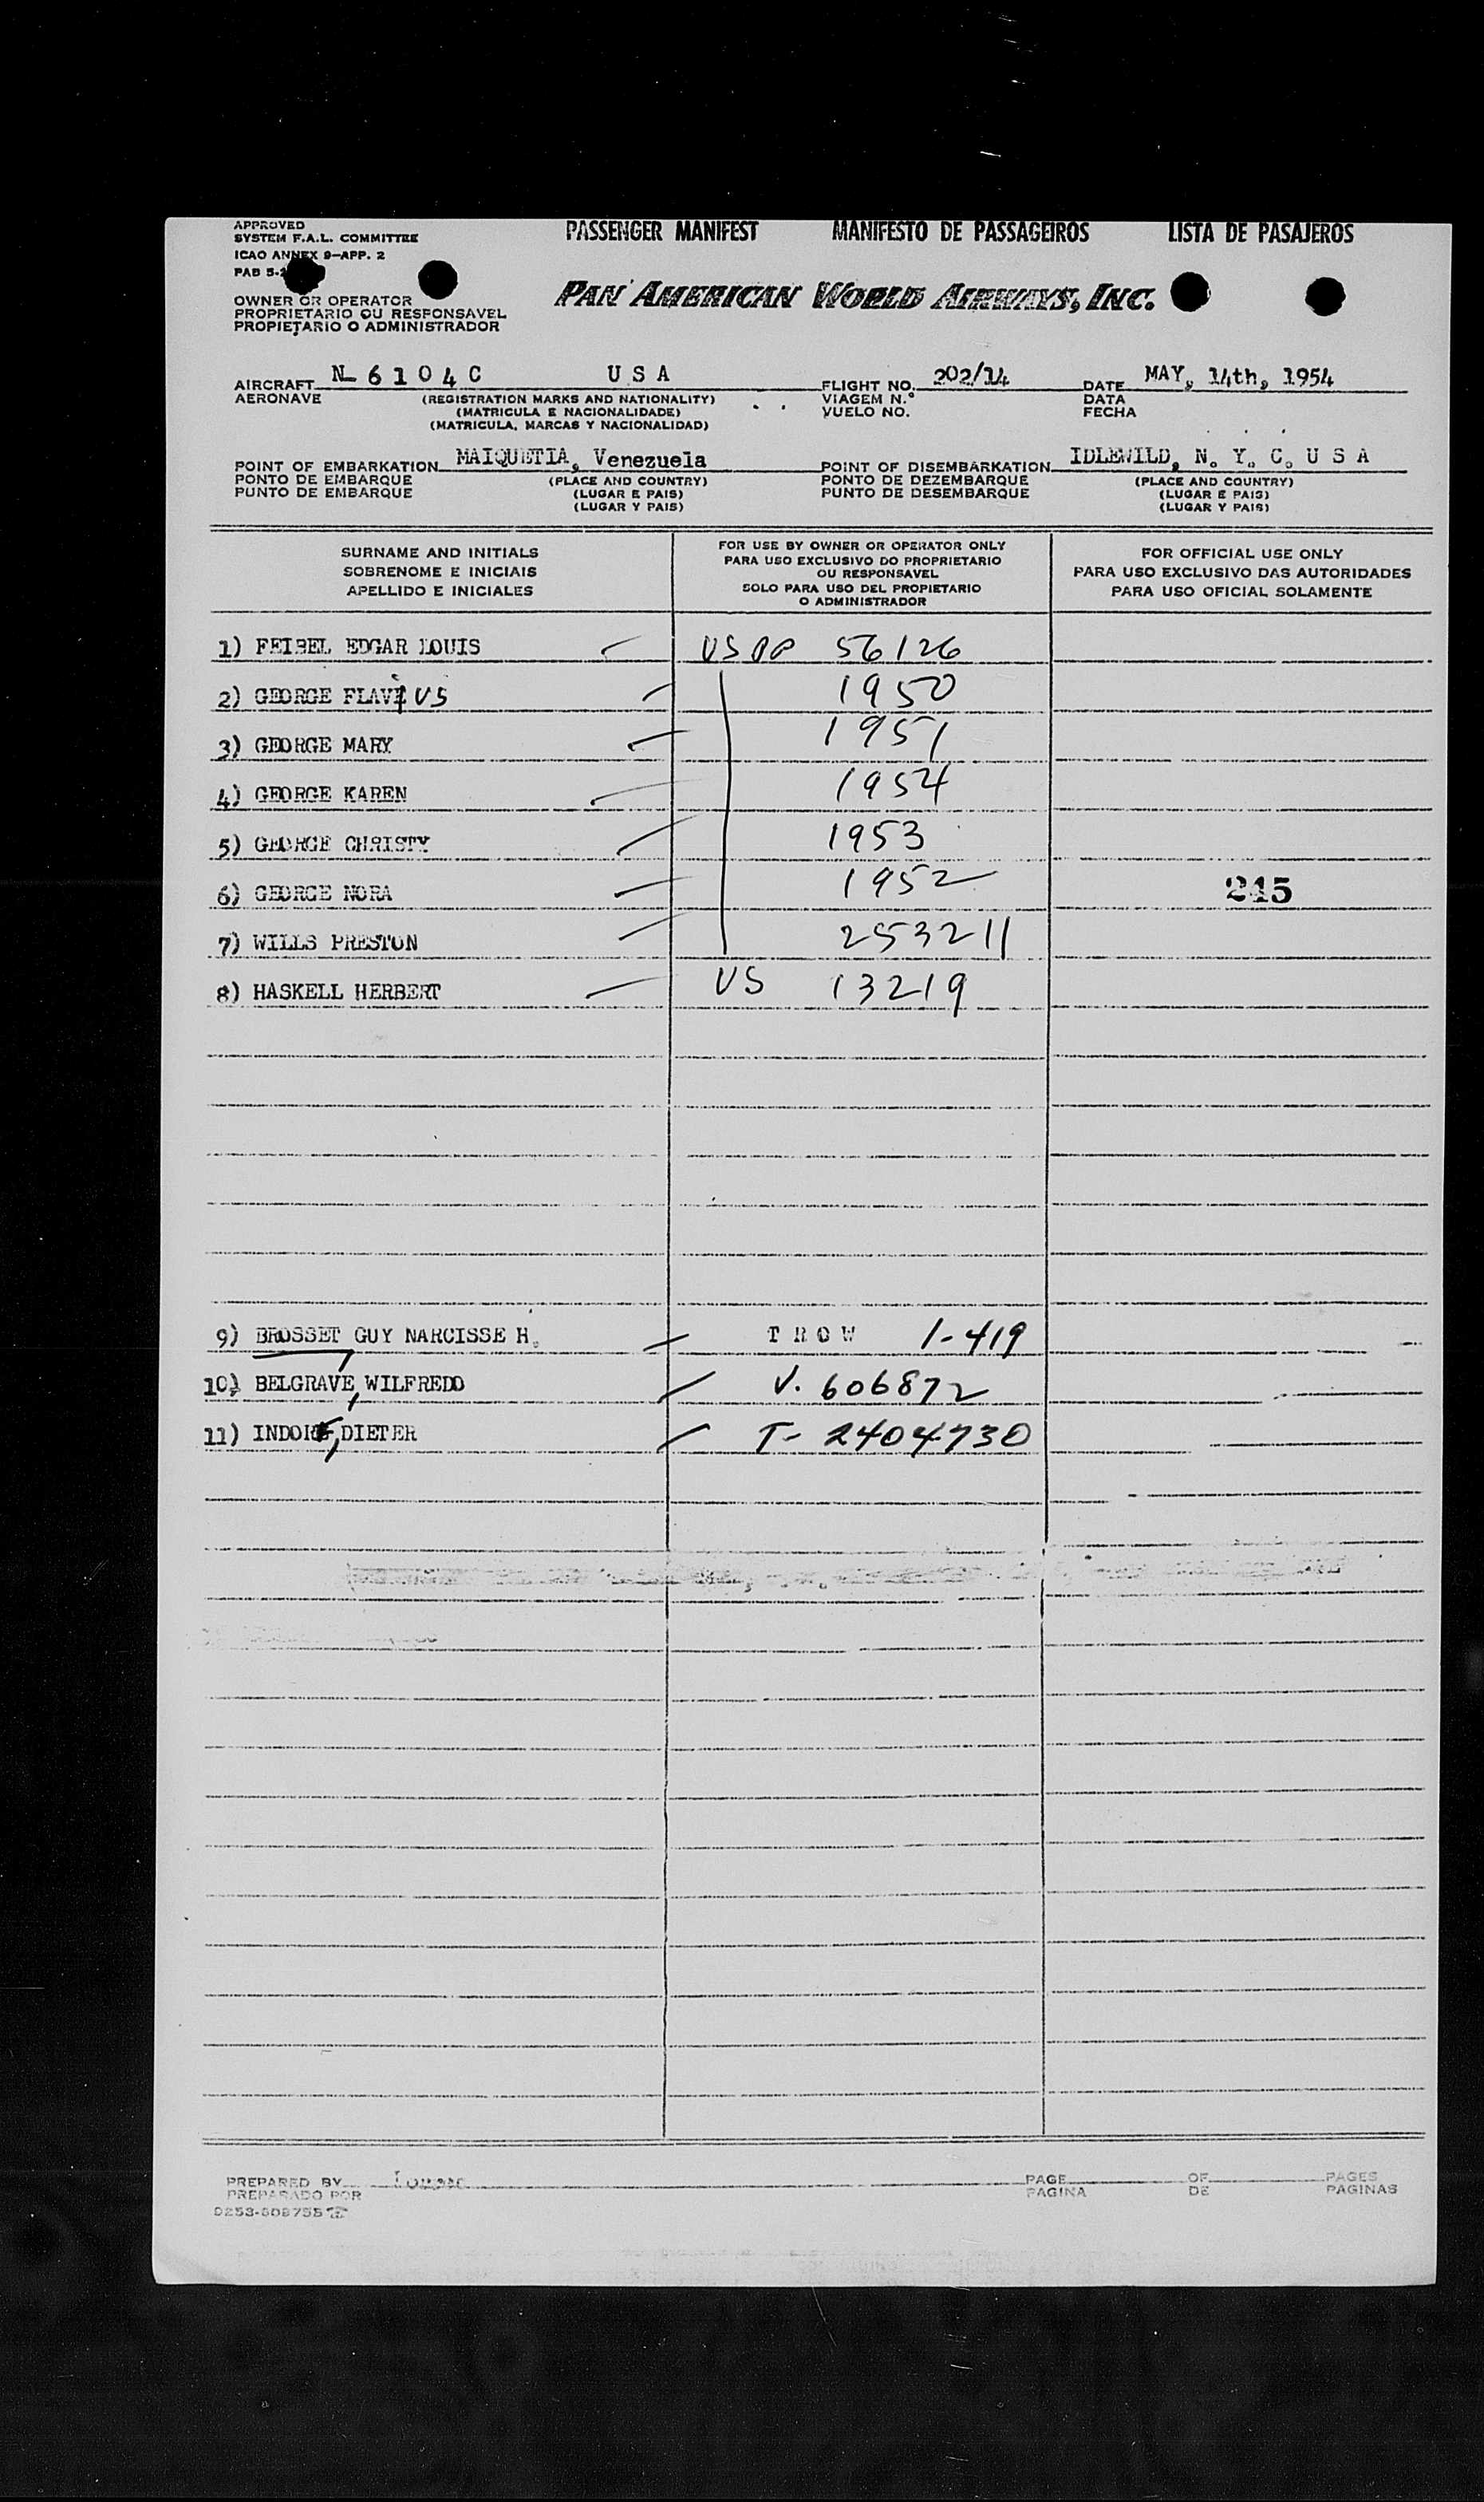 APPROVED
SYSTEM F.A.L. COMMITTEE
ICAO ANNEX 9—APP. 2
PAB 5-
PASSENGER MANIFEST MANIFESTO DE PASSAGEIROS LISTA DE PASAJEROS
PAN AMERICAN WORLD AIRWAYS, INC.
OWNER OR OPERATOR
PROPRIETARIO OU RESPONSAVEL
PROPIETARIO O ADMINISTRADOR
AIRCRAFT N 6104C USA FLIGHT NO. 202/14 DATE MAY, 14th, 1954
AERONAVE (REGISTRATION MARKS AND NATIONALITY) VIAGEM N.º DATA
(MATRICULA E NACIONALIDADE) VUELO NO. FECHA
(MATRICULA, MARCAS Y NACIONALIDAD)
POINT OF EMBARKATION MAIQUETIA, Venezuela POINT OF DISEMBARKATION IDLEWILD, N. Y. C. U S A
PONTO DE EMBARQUE (PLACE AND COUNTRY) PONTO DE DEZEMBARQUE (PLACE AND COUNTRY)
PUNTO DE EMBARQUE (LUGAR E PAIS) PUNTO DE DESEMBARQUE (LUGAR E PAIS)
(LUGAR Y PAIS) (LUGAR Y PAIS)
SURNAME AND INITIALS
SOBRENOME E INICIAIS
APELLIDO E INICIALES
FOR USE BY OWNER OR OPERATOR ONLY
PARA USO EXCLUSIVO DO PROPRIETARIO
OU RESPONSAVEL
SOLO PARA USO DEL PROPIETARIO
O ADMINISTRADOR
FOR OFFICIAL USE ONLY
PARA USO EXCLUSIVO DAS AUTORIDADES
PARA USO OFICIAL SOLAMENTE
1) FEIBEL EDGAR LOUIS US PP 56126
2) GEORGE FLAVIUS 1950
3) GEORGE MARY 1951
4) GEORGE KAREN 1954
5) GEORGE CHRISTY 1953
6) GEORGE NORA 1952 245
7) WILLS PRESTON 253211
8) HASKELL HERBERT US 13219
9) BROSSET GUY NARCISSE H. T R O W 1-419
10) BELGRAVE, WILFREDO V. 606872
11) INDORF, DIETER T- 2404730
PREPARED BY PAGE OF PAGES
PREPARADO POR PAGINA DE PAGINAS